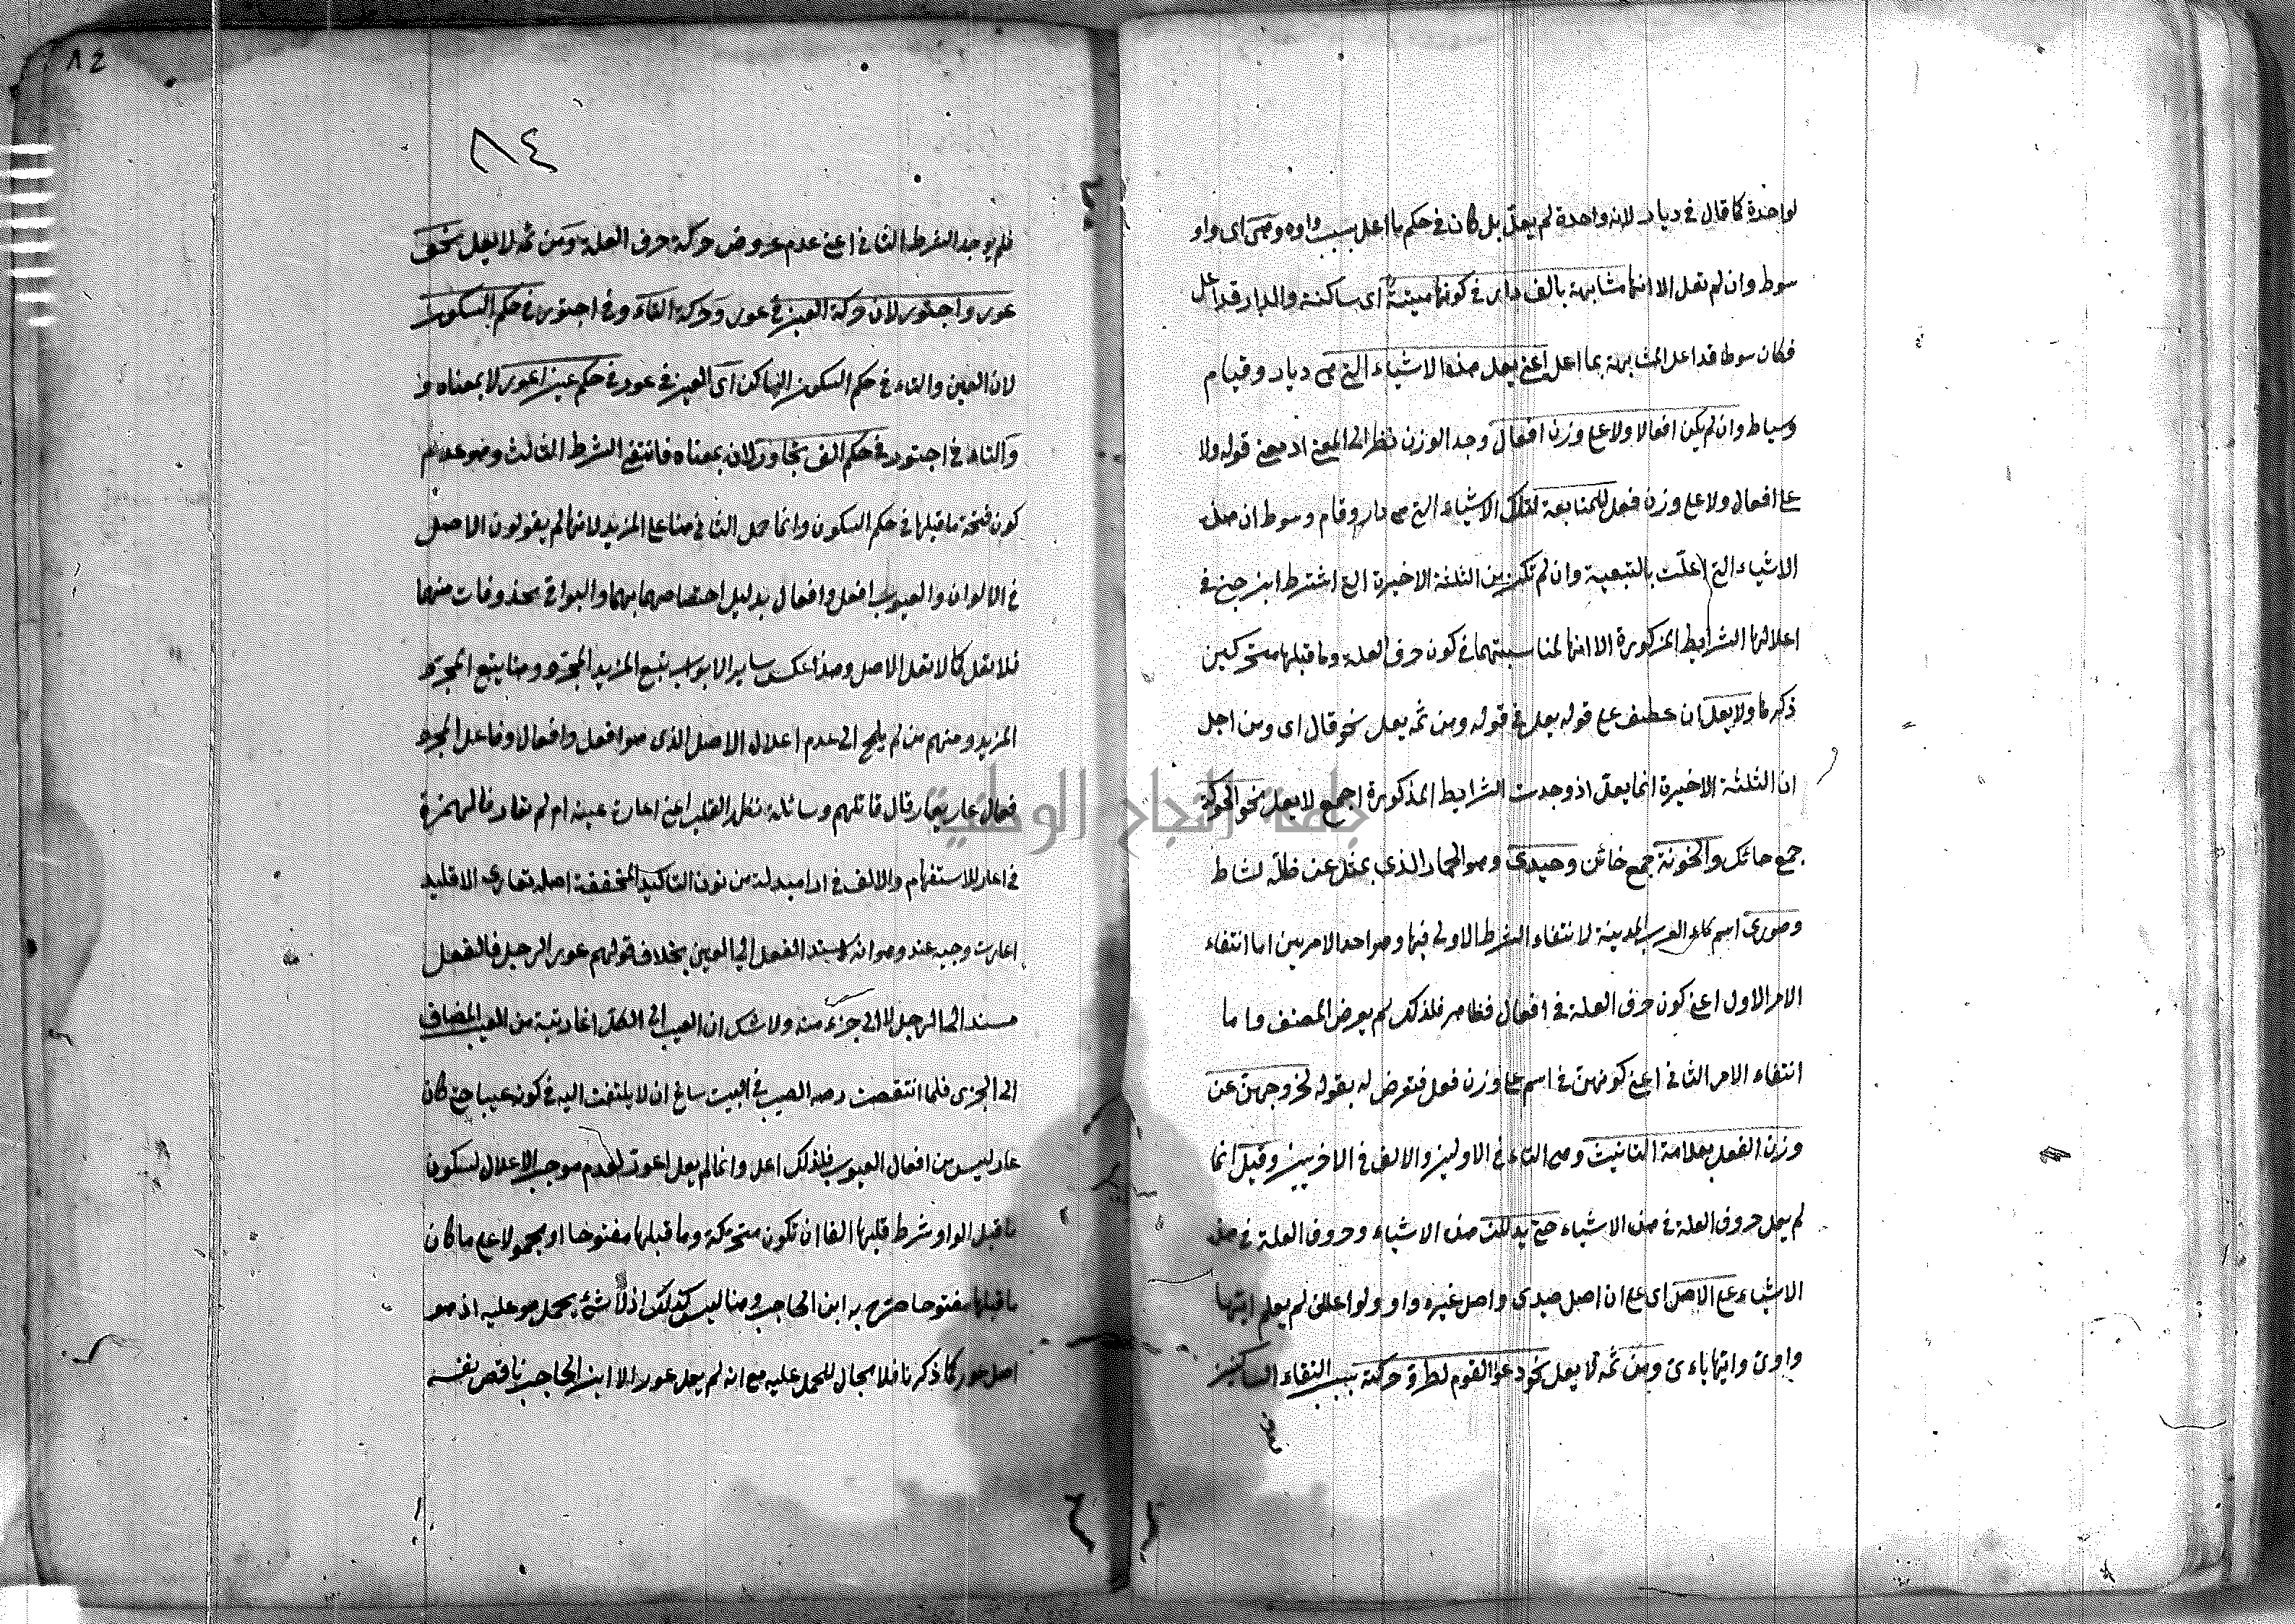 لواحدة كما قال في ديار لانه واحدة لم يعلّ بل كان في حكم ما اعل بسبب واوه وهى اى واو
سوط وان لم تعل الا انها مشابهة بالف دار في كونها ميتة اى ساكنة والدار قد اعل
فكان سوط قد اعل لمشابهة بما اعل اعنى يعل هذه الاشياء التى هى ديار وقيام
وسياط وان لم يكن افعالا ولا على وزن افعال وجد الوزن نظرا الى المعنى اذ معنى قوله ولا
على افعال ولا على وزن فعل للمتابعة لتلك الاشياء التى هى دار وقام وسوط ان هذه
الاشياء التى اعلّت بالتبعية وان لم تكن من الثلثة الاخيرة التى اشترط ابن جنى في
اعلالها الشرايط المذكورة الا انها لمناسبتهما في كون حرف العلة وما قبلها متحركين
ذكرها ولا يعل ان عطف على قوله يعل في قوله ومن ثمه يعل نحو قال اى ومن اجل
ان الثلثة الاخيرة انما يعل اذ وجدت الشرايط المذكورة اجمع لا يعل نحو الحوكة
جمع حائك والخونة جمع خائن وحيدى وهو الحمار الذى يميل عن ظلّه لنشاط
وصورى اسم ماء لقرب المدينة لانتفاء الشرط الاولى فيها وهو احد الامرين اما انتفاء
الامر الاول اعنى كون حرف العلة في افعال فظاهر فلذلك لم يعرض المصنف واما
انتفاء الامر الثانى اعنى كونهن في اسم على وزن فعل فتعرض له بقوله لخروجهن عن
وزن الفعل بعلامة التانيث وهى التاء في الاولين والالف في الاخريين وقيل انما
لم يعل حروف العلة في هذه الاشياء حتى يدللن هذه الاشياء وحروف العلة في هذه
الاشياء على الاصل اى على ان اصل حيدى واصل غيره واو ولو اعللن لم يعلم ايتها
واوى وايتها ياءى ومن ثمه لا يعل نحو دعوا القوم لطروّ حركته بسبب التقاء الساكنين
٨٤
فلم يوجد الشرط الثانى اعنى عدم عروض حركة حرف العلة ومن ثمه لا يعل نحو
عور واجتور لان حركة العين في عور وحركة التاء في اجتور في حكم السكون
لان العين والتاء في حكم السكون الساكن اى العين في عور في حكم عين اعور لا بمعناه و
والتاء في اجتور في حكم الف تجاور لان بمعناه فانتفى الشرط الثالث وهو عدم
كون فتحة ما قبلها في حكم السكون وانما حمل الثانى هنا على المزيد لانهم لم يقولون الاصل
في الالوان والعيوب افعل وافعال بدليل اختصاصهما بهما والبواقى محذوفات منهما
فلا تعل كما لا تعل الاصل وهذا عكس ساير الابواب يتبع المزيد المجرد وهنا يتبع المجرد
المزيد ومنهم من لم يلمح الى عدم اعلال الاصل الذى هو افعل وافعال وفاعل المجرد
فعال عار يعار قال قائلهم وسائلة نفل القليل اعنى اعارت عينه ام لم تعارا فالهمزة
في اعار للاستفهام والالف في ارا مبدلة من نون التاكيد المخففة اصله تعارن الا قليد
اعارت وجيه عند وهو انه لا يسند الفعل الى العين بخلاف قولهم عور الرجل فالفعل
مسند الى الرجل لا الى جزء منه ولا شك ان العيب الى الكل
الى الجزى فلما انتقصت العيب في البيت ساغ ان لا يلتفت اليه في كونه عيبا حتى كان
عار ليس من افعال العيوب فلذلك اعل وانما لم يعل اعور لعدم موجب الاعلال لسكون
ما قبل الواو شرط قلبها الفا ان تكون متحركة وما قبلها مفتوحا او محمولا على ما كان
ما قبلها مفتوحا صرّح به ابن الحاجب وهنا ليس كذلك اذ لا شئ يحمل هو عليه اذ هو
اصل عور كما ذكرنا فلا مجال للحمل عليه مع انه لم يعل عور الا ابن الحاجب ناقص نفسه
جامعة النجاح الوطنية